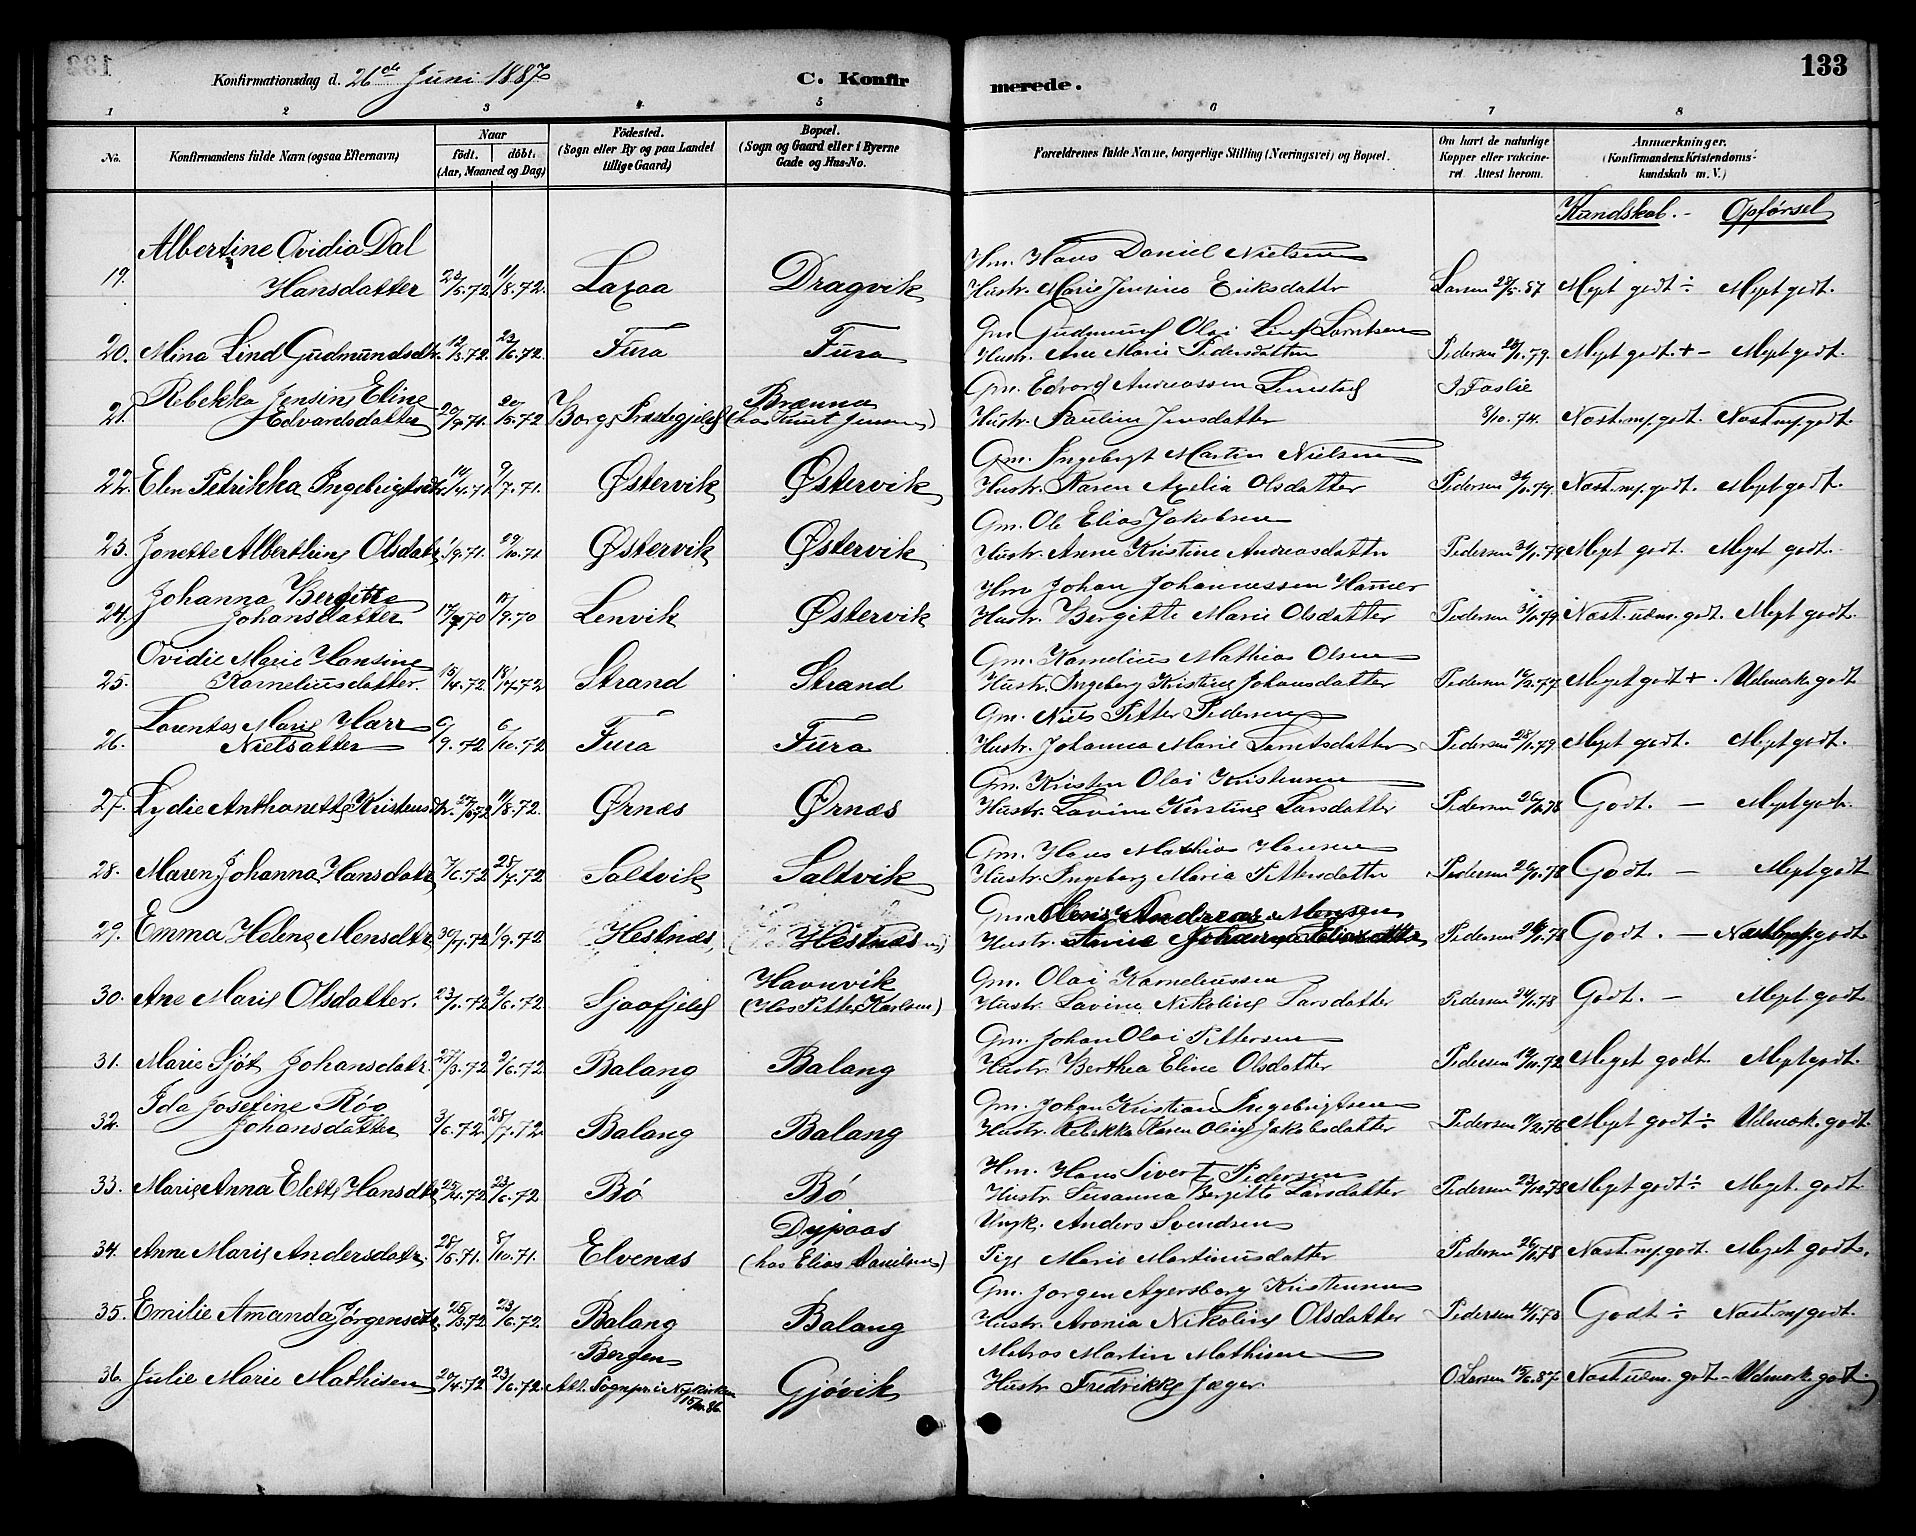 Konfirmationsdag d. 26de Juni 1887
C. Konfir
merede.
133
1 2 3 4 5 6 7 8
No.
Konfirmandens fulde Navn (ogsaa Efternavn)
Naar
født. døbt.
(Aar, Maaned og Dag)
Fødested.
(Sogn eller By og paa Landet
tillige Gaard)
Bopæl.
(Sogn og Gaard eller i Byerne
Gade og Hus-No.
Forældrenes fulde Navne, borgerlige Stilling (Næringsvei) og Bopæl.
Om havt de naturlige
Kopper eller vakcine-
ret. Attest herom.
Anmærkninger.
(Konfirmandens Kristendoms-
kundskab m. V.)
Kundskab. - Opførsel
Albertine Ovidia Dal Hm. Hans Daniel Nielsen
19. Hansdatter 11/8.72. Laxaa Dragvik Hustr. Marie Jensine Eriksdatter Larsen Meget godt ÷ Meget godt.
Gm. Gudmund Olai Lind Lorntsen
20. Mina Lind Gudmundsdtr. 23/6.72. Fura Fura Hustr. Ane Marie Pedersdatter Pedersen Meget godt. + - Meget godt.
Rebekka Jensine Eline Brænna Gm. Edvard Andreassen I Foslie
21. Edvardsdatter 20/9.71. 20/5.72 Borge Præstegjeld (hos Knut Jensen) Hustr. Pauline Jensdatter 8/10.74. Næst. m. godt. Næst. m. godt.
Gm. Ingebrigt Martin Nielsen
22. Elen Petrikka Ingebrigtsdtr. 14/4.71 9/7.71. Østervik Østervik Hustr. Karen Axelia Olsdatter Pedersen 31/1.79. Næst. m. godt. Meget godt.
Gm. Ole Elias Jakobsen
23. Jonette Alberthine Olsdatr. 1/9.71. 29/10.71 Østervik Østervik Hustr. Anne Kristine Andreasdatter Pedersen 31/1.79 Meget godt. Meget godt.
Johanna Bergitte Hm Johan Johannessen Hamer
24. Johansdatter 17/9.70 Lenvik Østervik Hustr. Bergitte Marie Olsdatter Pedersen 31/1.79. Næst. udm. godt. Meget godt.
Ovidie Marie Hansine Gm. Kornelius Mathias Olsen
25. Korneliusdatter. 15/4.72 Strand Strand Hustr. Ingeborg Kristine Johansdatter Pedersen Meget godt + . Udmærk. godt
Lorentze Marie Harr Gm. Niels Petter Pedersen
26. Nielsdatter 6/9.72 6/10.72 Fura Fura Hustr. Johanna Marie Lorntsdatter Pedersen Meget godt. Meget godt.
Gm. Kristen Olai Kristensen
27. Lydie Anthonette Kristensdtr. 11/8.72. Ørnæs Ørnæs Hustr. Lovine Kirstine Larsdatter Pedersen Godt. — Meget godt.
Gm. Hans Mathias Hansen
28. Maren Johanna Hansdatr. 7/6.72 28/7.72 Saltvik Saltvik Hustr. Ingeborg Maria Pettersdatter Pedersen Godt. — Meget godt
Gm. Mons Andreas Monsen
29. Emma Helene Mensdtr. 30/7.72 1/9.72 Hestnæs Hestnæs Hustr. Anne Johanna Eliasdatter Pedersen Godt. — Næst. m. godt
Havnvik Gm. Olai Korneliussen
30. Ane Marie Olsdatter. 23/1.72 2/6.72 Sjaafjeld (Hos Petter Karlsen) Hustr. Lavine Nikoline Larsdatter Pedersen 24/1.78 Godt. — Meget godt
Gm. Johan Olai Pettersen
31. Marie Sjøt Johansdatr. 27/3.72 2/6.72 Balang Balang Hustr. Berthea Eline Olsdatter Pedersen Meget godt. Meget godt.
Ida Josefine Røo Gm. Johan Kristian Ingebrigtsen
32. Johansdatter 3/6.72. 28/7.72 Balang Balang Hustr. Rebekka Karen Oline Jakobsdatter Pedersen Meget godt ÷ Udmærk. godt.
Hm. Hans Sivert Pedersen
33. Marie Anna Elette Hansdtr. 25/4.72 23/6.72 Bø Bø Hustr. Susanna Bergitte Larsdatter Pedersen Meget godt ÷ Meget godt
Dypaas Ungk. Anders Svendsen
34. Anne Marie Andersdatr. 28/5.71. 8/10.71. Elvenæs (hos Elias Danielsen) Pige Marie Martinusdatter Pedersen Næst. m. godt. Meget godt.
Gm. Jørgen Agersborg Kristensen
35. Emilie Amanda Jørgensdtr. 25/3.72 23/6.72. Balang Balang Hustr. Aronia Nikoline Olsdatter Pedersen Godt ÷ Næst. m. godt.
Bergen Matros Martin Mathisen
36. Julie Marie Mathisen 20/4.72 23/6.72. Att. Sognepr. i Nykirken Gjøvik Hustr. Fredrikke Jæger O. Larsen 15/6.87. Næst udm. godt - Udmærk. godt.